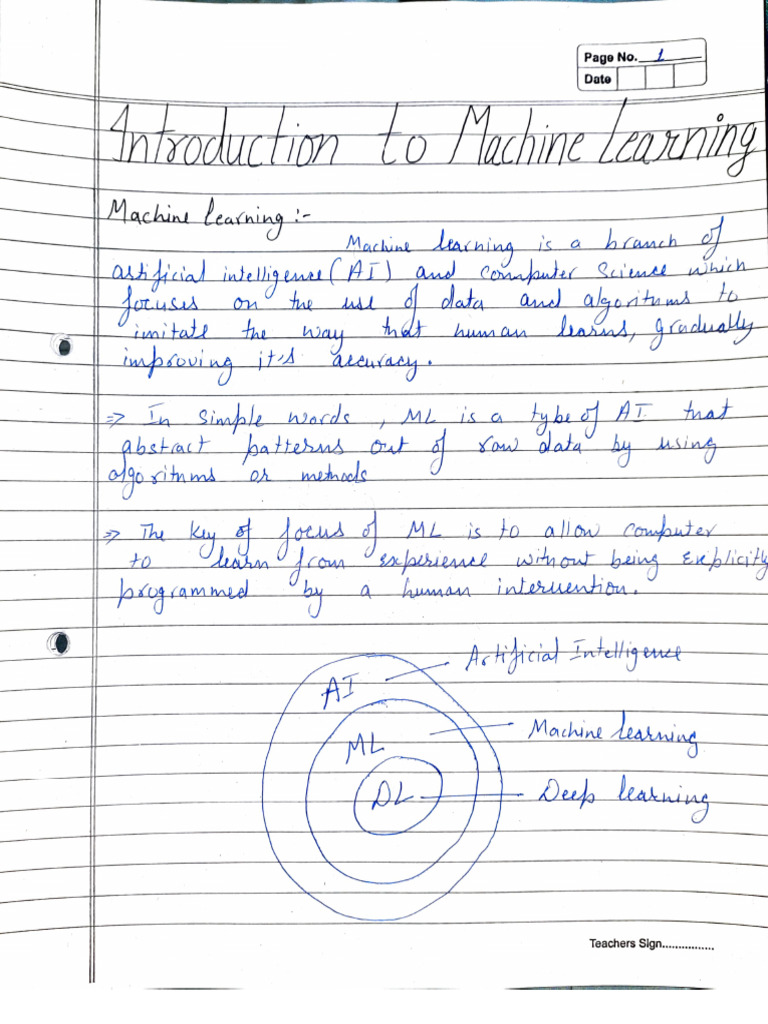 Page No. 1
Date
Introduction to Machine Learning
Machine Learning :-
Machine learning is a branch of
artificial intelligence (AI) and computer Science which
focuses on the use of data and algorithms to
imitate the way that human learns, gradually
improving it's accuracy.
=> In simple words, ML is a type of AI that
abstract patterns out of raw data by using
algorithms or methods
=> The key of focus of ML is to allow computer
to learn from experience without being explicitly
programmed by a human intervention.
Artificial Intelligence
AI
Machine learning
ML
DL
Deep learning
Teachers Sign................